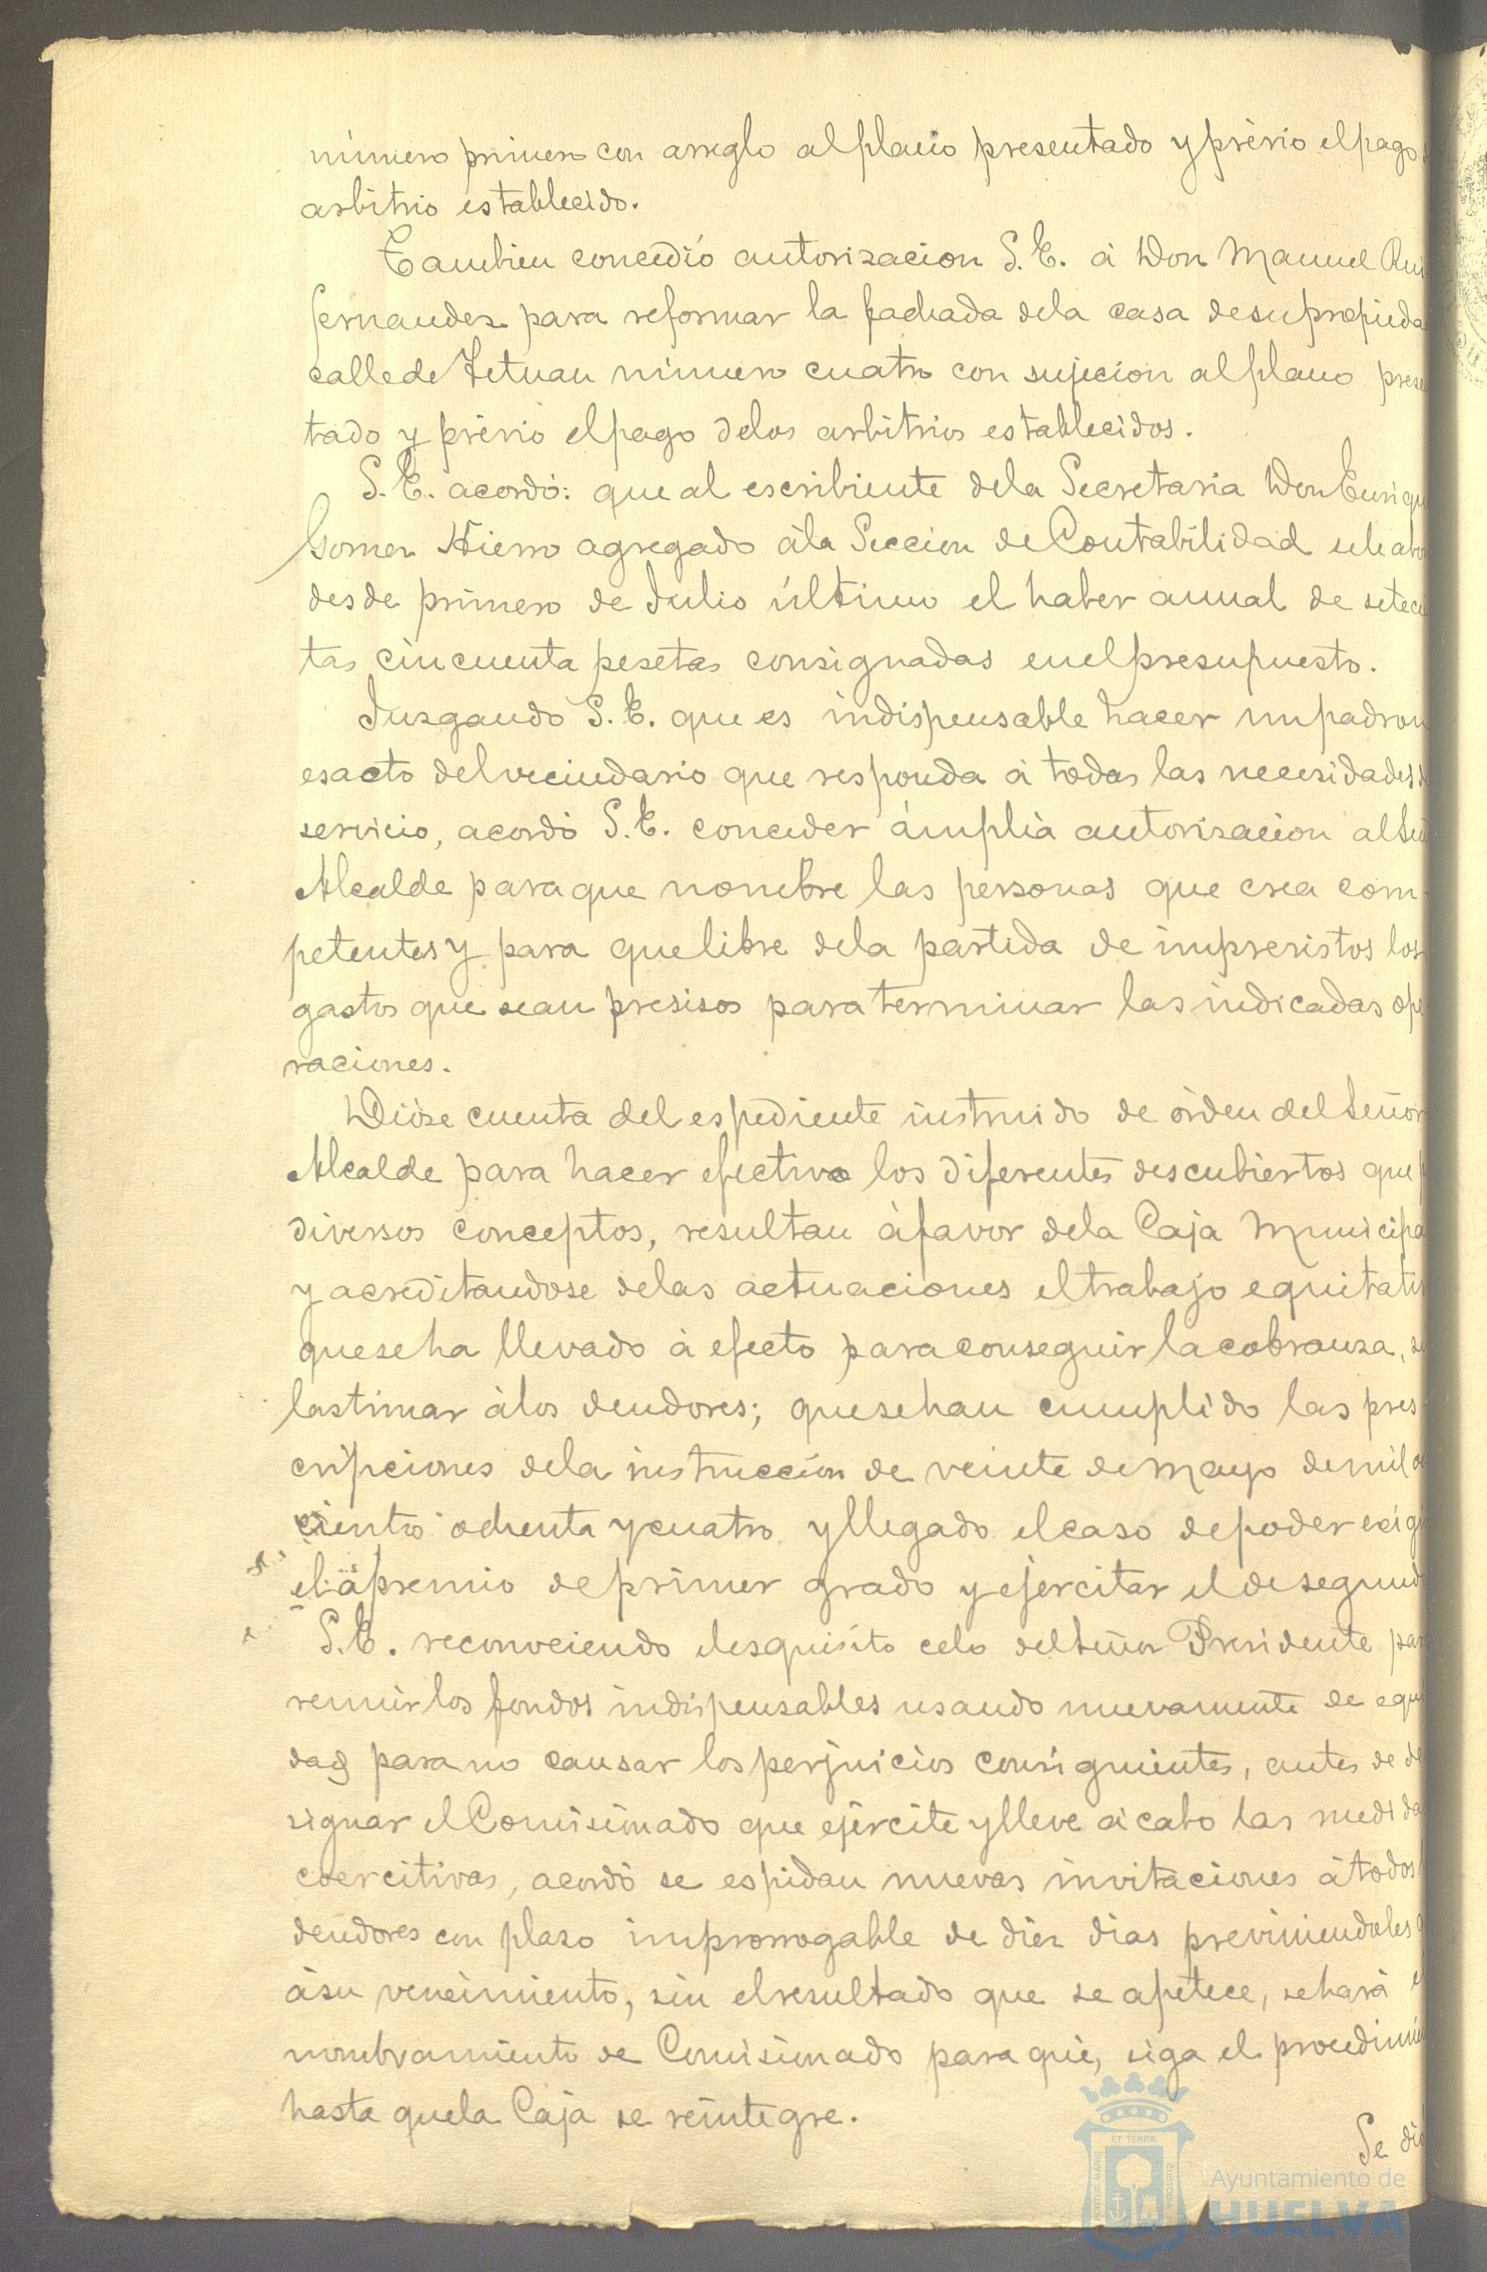 número primero con arreglo al plano presentado y prévio el pago
arbitrio establecido.
Tambien concedió autorizacion S.E. á Don Manuel Rui
Fernandez para reformar la fachada dela casa desupropieda
callede Tetuan número cuatro con sujecion al plano prese
tado y prévio elpago delos arbitrios establecidos.
S.E. acordó: queal escribiente dela Secretaria Don Enriqu
Gomez Hierro agregado ála Seccion deContabilidad sele abo
desde primero de Julio último el haber anual de setecie
tas cincuenta pesetas consignadas enelpresupuesto.
Juzgando S.E. que es indispensable hacer unpadron
esacto delvecindario que responda á todas las necesidades d
servicio, acordó S.E. conceder ámplia autorizacion alSeñ
Alcalde paraque nombre las personas que crea com-
petentes y para quelibre dela partida de imprevistos los
gastos que sean presisos paraterminar las indicadas ope
raciones.
Dióse cuenta del espediente instruido de órden delSeñor
Alcalde para hacer efectivo los diferentes descubiertos que p
diversos conceptos, resultan áfavor dela Caja Municipa
y acreditandose delas actuaciones eltrabajo equitati
queseha llevado á efecto paraconseguir lacobranza, s
lastimar álos deudores; quesehan cumplido las pres-
cripciones dela instruccion de veinte demayo demil o
ciento ochenta ycuatro yllegado elcaso depoder exigi
el apremio deprimer grado y ejercitar el desegund
S.E. reconociendo elesquisito celo delSeñor Presidente par
reunir los fondos indispensables usando nuevamente de equi
dad parano causar losperjuicios consiguientes, antes de de
signar elComisionado que ejercite ylleve á cabo las medida
coercitivas, acordó se espidan nuevas invitaciones átodos l
deudores con plazo improrrogable de diez dias previniendoles q
ásu vencimiento, sin elresultado que se apetece, sehará e
nombramiento de Comisionado paraque, siga el procedimie
hasta quela Caja se reintegre.
Se dió
ET TERRÆ
PORTUS MARIS
CUSTODIA
Ayuntamiento de
HUELVA